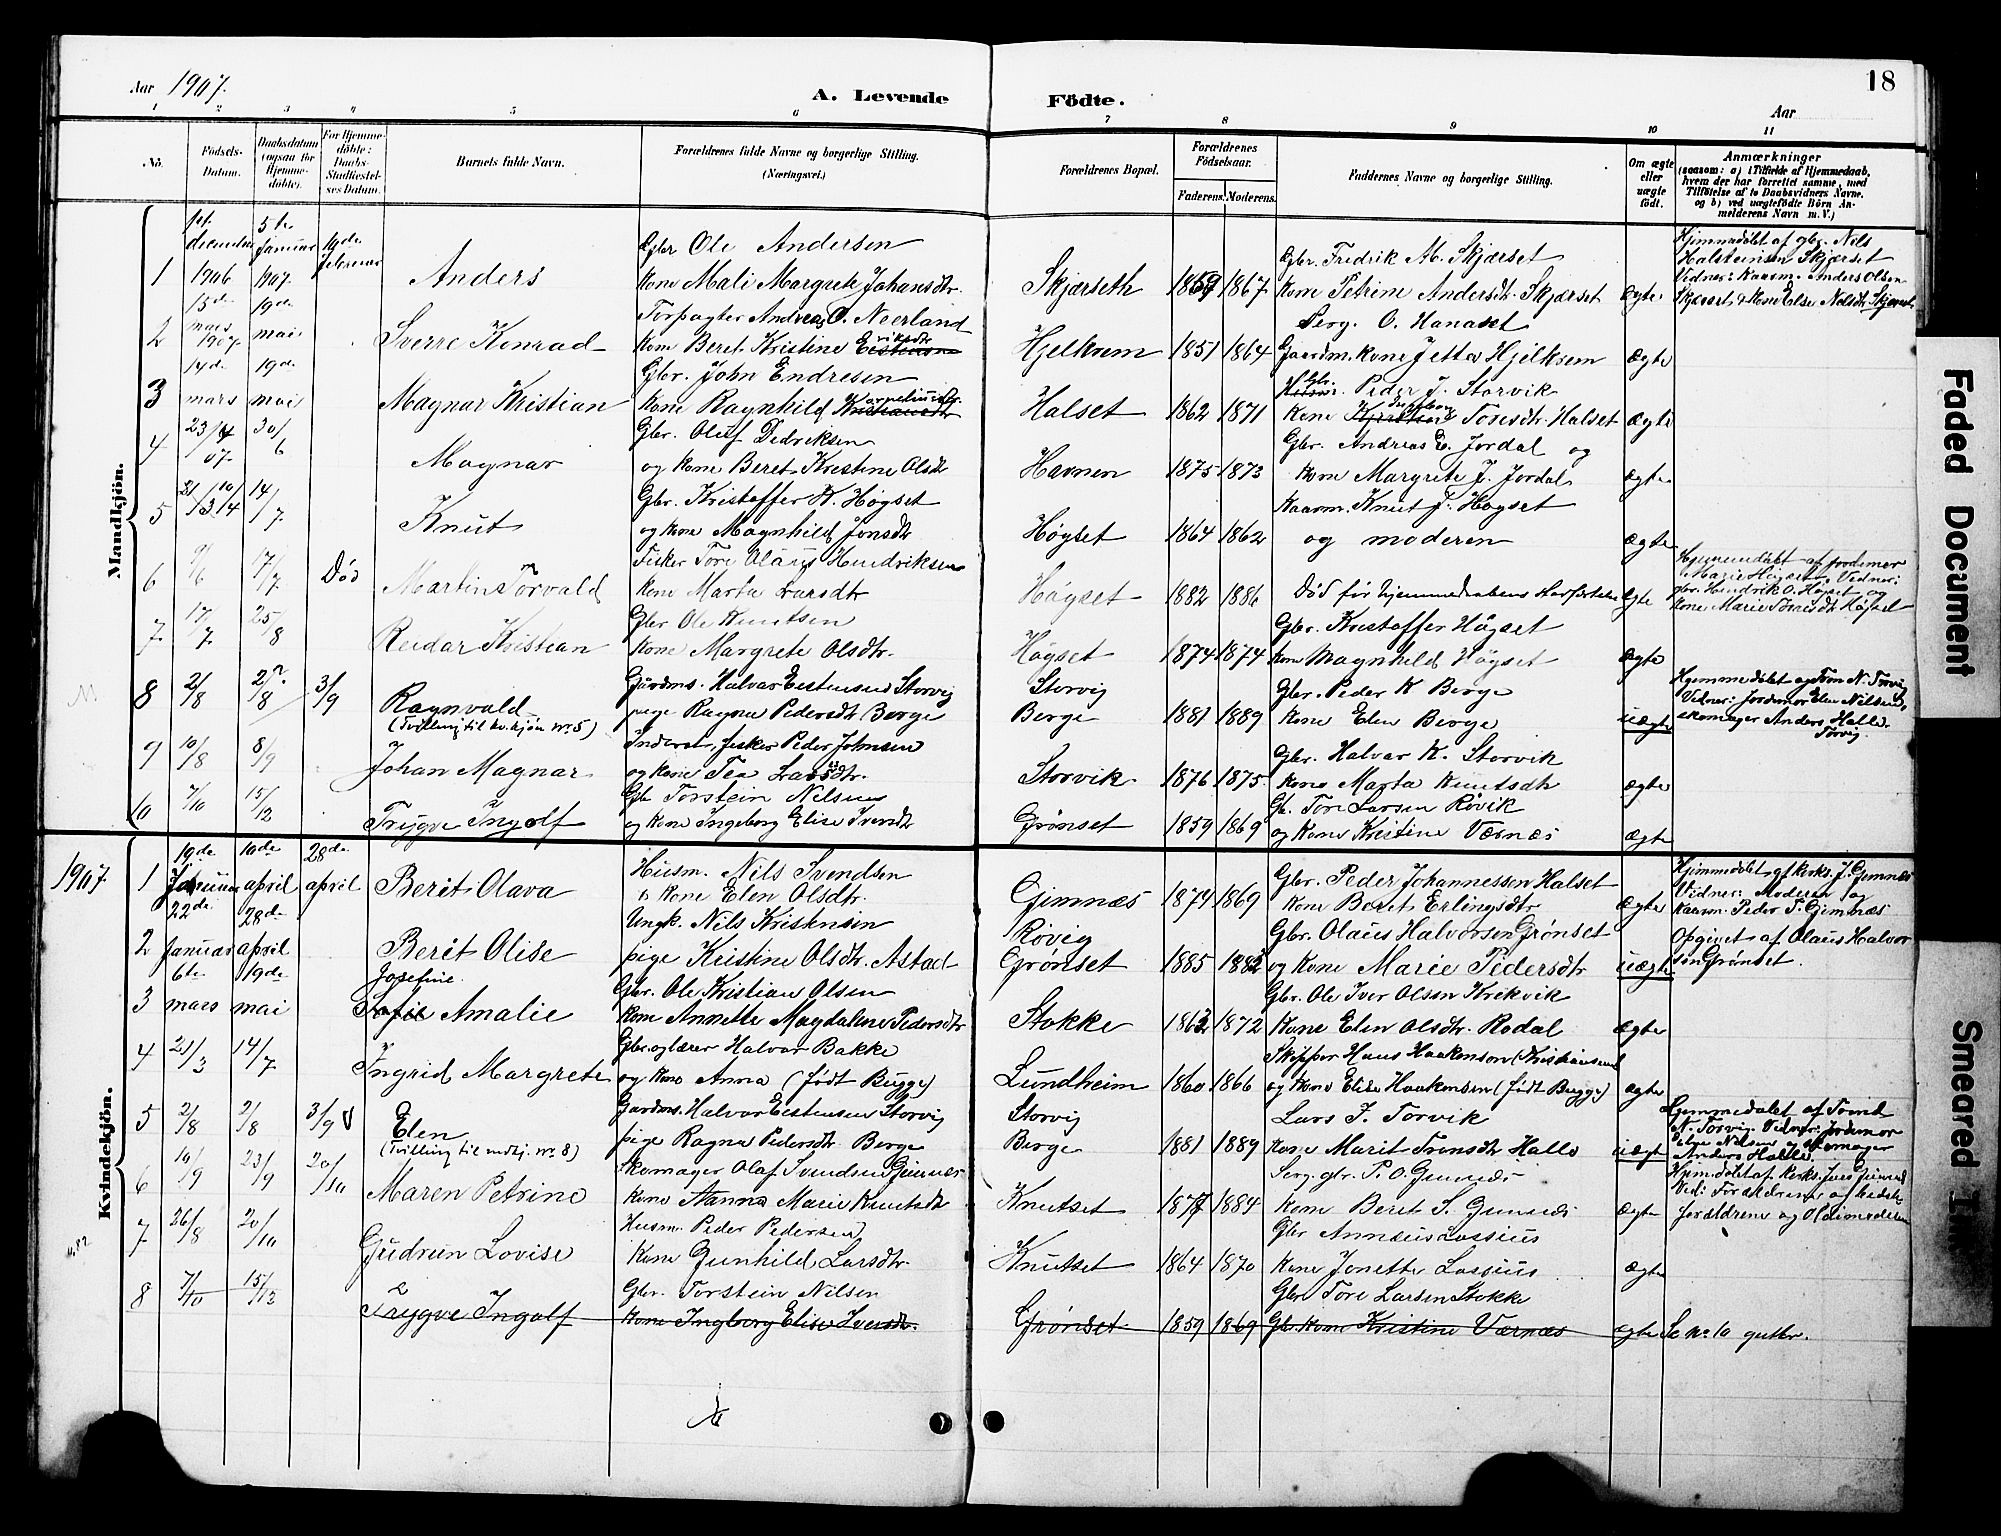 Aar 1907.
A. Levende Födte.
18
Aar
1 2 3 4 5 6 7 8 9 10 11
No. Födsels-Datum. Daabsdatum (ogsaa for Hjemmedöbte). For Hjemmedöbte: Daabs-Stadfæstelses Datum. Barnets fulde Navn. Forældrenes fulde Navne og borgerlige Stilling. (Næringsvei.) Forældrenes Bopæl. Forældrenes Födselsaar. Faderens. Moderens. Faddernes Navne og borgerlige Stilling. Om ægte eller uægte födt. Anmærkninger (saasom: a) i Tilfælde af Hjemmedaab, hvem der har forrettet samme, med Tilföielse af to Daabsvidners Navne. og b) ved uægtefödte Börn Anmelderens Navn m. V.)
Mandkjön.
1 1st december 1906 5te januar 1907 19de februar Anders Gbr Ole Andersen Kone Mali Margrete Johansdtr. Skjærseth 1859 1867 Gbr. Fredrik A. Skjærset Kone Petrine Andersdtr. Skjærset ægte Hjemmedöbt af gbr. Nils Halsteinsen Skjærset Vidner: Kaarm. Anders Olsen Skjærset & Kone Else Nilsdtr Skjærset
2 15de mars 1907 19de mai Sverre Konrad Forpagter Andreas O. Neerland Kone Beret Kristine Hjelkrem 1851 1864 Serg. O. Hanaset Gaardm. Kone Jetta Hjelkrem Ægte
3 14de mars 19de mai Magnar Kristian Gbr. John Endresen Kone Ragnhild Korneliusdtr. Kristiansdtr Halset 1862 1871 Gbr. Peder J. Storvik Kone Ingeborg Toresdtr. Halset Ægte
4 23/4 07 30/6 Magnar Gbr. Oluf Didriksen og Kone Beret Kristine Olsdtr Havnen 1875 1873 Gbr. Andreas E. Jordal og Kone Margrete J. Jordal ægte
5 14/7 Knut Gbr. Kristoffer K. Högset og Kone Magnhild Jonsdtr Högset 1864 1862 Kaarm. Knut T. Högset og moderen ægte
6 9/6 17/7 Död Martin Torvald Fisker Tore Olaus Hendriksen Kone Marta Larsdtr Högset 1882 1886 Död før hjemmedaabens stadfæstelse ægte Hjemmedöbt af jordemor Marie Högset. Vidner: gbr. Hendrik O. Högset og Kone Marie Toresdtr Högset
7 17/7 25/8 Reidar Kristian Gbr Ole Knutsen Kone Margrete Olsdtr. Högset 1874 1874 Gbr. Kristoffer Högset Kone Magnhild Högset ægte
8 2/8 2/8 3/9 Ragnvald (Tvilling til kv.kjön nr. 5) Gaardms. Halvar Eistensen Storvig pige Ragna Pedersdtr Berge Storvig Berge 1881 1889 Gbr. Peder K Berge Kone Elen Berge uægte Hjemmedöbt af N. Torvig Vidner: Jordemor Elen Nilsen, skomager Anders Halle. Torvig.
9 10/8 8/9 Johan Magnar Inderst, fisker Peder Johnsen og Kone Tea Larsdtr. Storvik 1876 1875 Gbr. Halvar K. Storvik Kone Marta Knutsdtr ægte
10 7/10 15/12 Trygve Ingolf Gbr Torstein Nilsen og Kone Ingeborg Elise Iversdtr Grönset 1859 1869 Gb. Tore Larsen Rövik og Kone Kristine Værnæs ægte
1907.
Kvindekjön.
1 19de Januar 10de april 28de april Berit Olava Husm. Nils Svendsen & Kone Elen Olsdtr. Gimnæs 1874 1869 Gbr. Peder Johannessen Halset Kone Beret Erlingsdtr ægte Hjemmedöbt af kerks. J. Gimnæs Vidner: Moderen og Kaarm. Peder T. Gimnæs
2 22de Januar 28de april Berit Olise Ungk. Nils Kristensen pige Kristine Olsdtr. Astad Rövig Grönset 1885 1882 Gbr. Olaus Halvorsen Grönset og Kone Marie Pedersdtr uægte Opgivet af Olaus Halvorsen Grönset.
3 6te mars 19de mai Josefine Sofie Amalie Gbr. Ole Kristian Olsen Kone Annette Magdalene Pedersdtr Stokke 1862 1872 Gbr. Ole Iver Olsen Krekvik Kone Elen Olsdtr. Rodal ægte
4 21/3 14/7 Ingrid Margrete Gbr. og lærer Halvar Bakke og Kone Anna (født Bugge) Lundheim 1860 1866 Skipper Hans Haakensen (Kristiansund) og Kone Elise Haakensen (født Bugge) ægte
5 2/8 2/8 3/9 Elen (Tvilling til mdkj. nr. 8) Gaardms. Halvar Eistensen Storvig pige Ragna Pedersdtr. Berge Storvig Berge 1881 1889 Lars J. Torvik Kone Marit Tronsdtr Halle uægte Hjemmedøbt af N. Torvig. Vidner: Jordemor Elen Nilsen og skomager Anders Halle.
6 23/9 20/10 Maren Petrine Skomager Olaf Svendsen Gimnæs Kone Hanna Marie Knutsdtr Knutset 1877 1884 Serg. gbr. P. O. Gimnæs Kone Beret S. Gimnæs ægte
7 26/8 20/10 Gudrun Lovise Husm. Peder Pedersen Kone Gunhild Larsdtr. Knutset 1864 1870 Gbr Annæus Lossius Kone Jonette Lossius ægte
8 7/10 15/12 Trygve Ingolf Gbr. Torstein Nilsen Kone Ingeborg Elise Iversdtr. Grönset 1859 1869 Gbr Tore Larsen Stokke Gbr Kone Kristine Værnæs ægte Se nr 10 gutter.
Faded Document
Smeared Ink